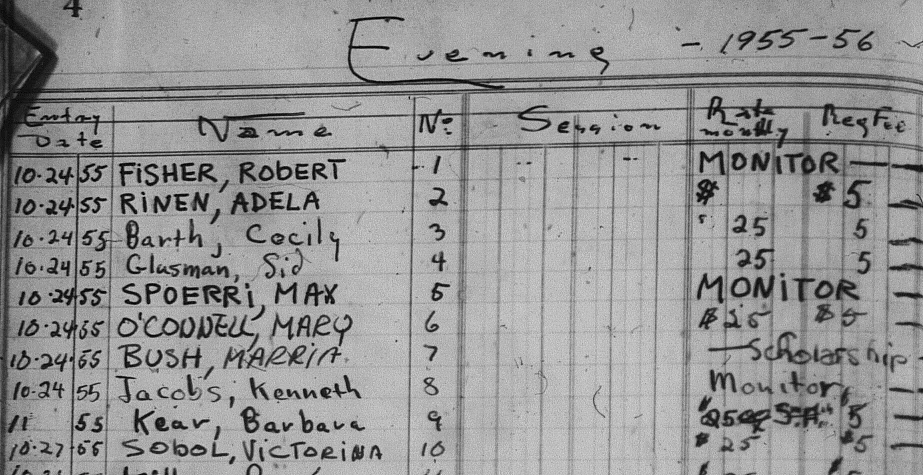 4
Evening - 1955-56
Entry Date Name No. Session Rate monthly Reg Fee
10·24 55 FISHER, ROBERT 1 MONITOR —
10·24 55 RINEN, ADELA 2 $ $ 5
10·24 55 Barth, Cecily 3 25 5
10·24 55 Glasman, Sid 4 25 5
10·24 55 SPOERRI, MAX 5 MONITOR
10·24 55 O'CONNELL, MARY 6 $25 $5
10·24·55 BUSH, MARRIA 7 —Scholarship
10·24 55 Jacobs, Kenneth 8 Monitor
11 55 Kear, Barbara 9 5
10·27·55 SOBOL, VICTORINA 10 $25 $5